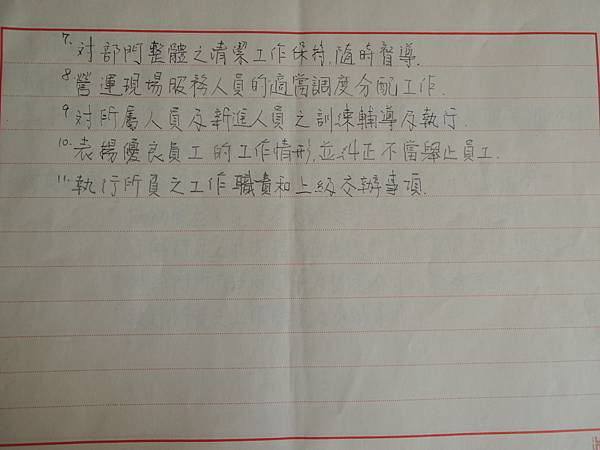 7. 对部門整體之清潔工作保持,隨時督導.
8. 營運現場服務人員的適當調度分配工作.
9. 对所屬人員及新進人員之訓練輔導及執行.
10. 表揚優良員工的工作情形,並糾正不當舉止員工.
11. 執行所負之工作職責和上級交辦事項.